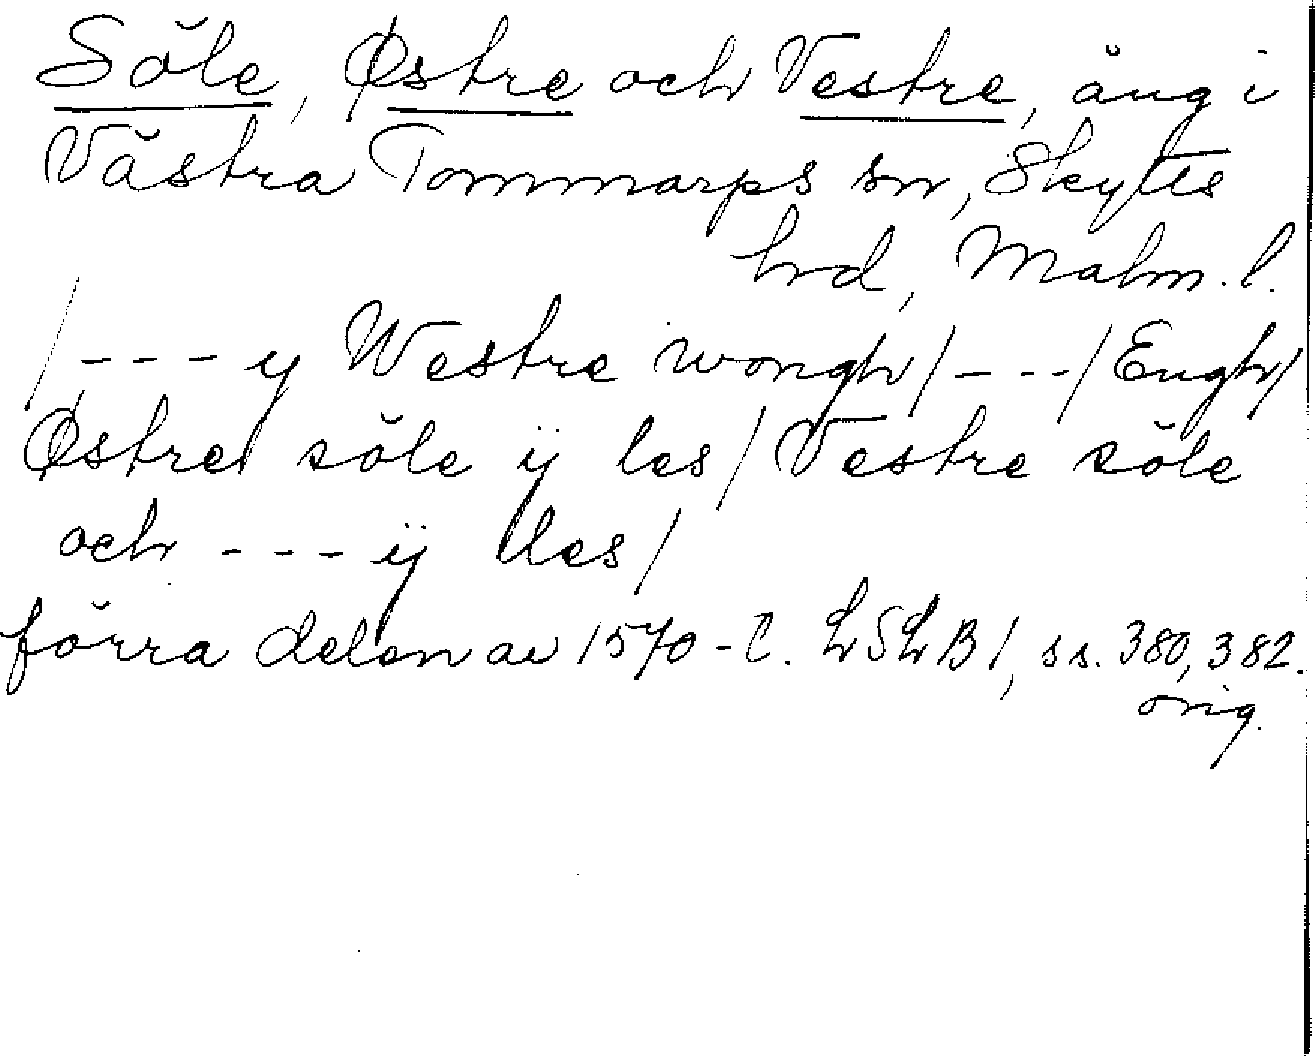 Söle, Østre och Vestre, äng i
Västra Tommarps sn, Skytts
hrd, Malm. l.
/ - - - y Westre wongh / - - - / Engh /
Østre söle ij les / Vestre söle
och - - - ij lles /
förra delen av 1570-t. LSLB 1, ss. 380, 382.
orig.